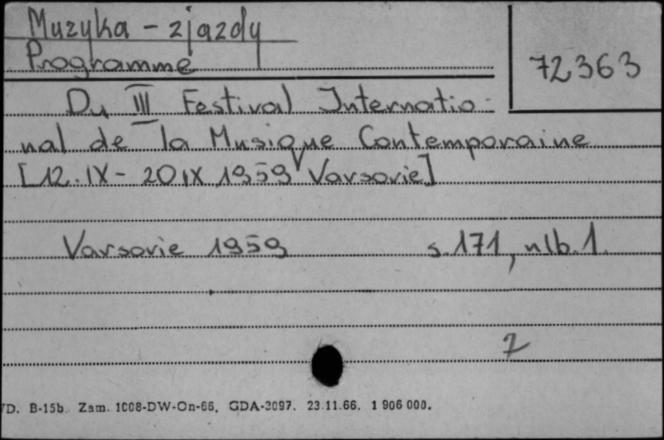 Muzyka - zjazdy
Programme
72363
Du III Festival Internatio-
nal de la Musique Contemporaine
[12.IX - 20 IX 1959 Varsovie]
Varsovie 1959 s. 171, nlb. 1.
2
D. B-15b. Zam. 1008-DW-On-66. GDA-3097. 23.11.66. 1 906 000.